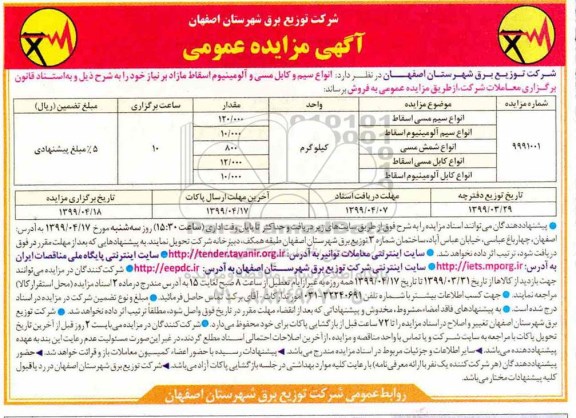 شرکت توزیع برق شهرستان اصفهان
آگهی مزایده عمومی
شرکت توزیع برق شهرستان اصفهان در نظر دارد: انواع سیم و کابل مسی و آلومینیوم اسقاط مازاد بر نیاز خود را به شرح ذیل و به استناد قانون
برگزاری معاملات شرکت، از طریق مزایده عمومی به فروش برساند:
شماره مزایده موضوع مزایده واحد مقدار ساعت برگزاری مبلغ تضمین (ریال)
۹۹۹۱۰۰۱ انواع سیم مسی اسقاط کیلو گرم ۱۲۰/۰۰۰ ۱۰ ۵٪ مبلغ پیشنهادی
انواع سیم آلومینیوم اسقاط ۱۰/۰۰۰
انواع شمش مسی ۸۰۰
انواع کابل مسی اسقاط ۱۲/۰۰۰
انواع کابل آلومینیوم اسقاط ۱۰/۰۰۰
تاریخ توزیع دفترچه مهلت دریافت اسناد آخرین مهلت ارسال پاکات تاریخ برگزاری مزایده
۱۳۹۹/۰۳/۲۹ ۱۳۹۹/۰۴/۰۷ ۱۳۹۹/۰۴/۱۷ ۱۳۹۹/۰۴/۱۸
پیشنهاددهندگان می توانند اسناد مزایده را به شرح فوق از طریق سایت های زیر دریافت و حداکثر تا پایان وقت اداری (ساعت ۱۵:۳۰) روز سه شنبه مورخ ۱۳۹۹/۰۴/۱۷ به آدرس:
اصفهان، چهارباغ عباسی، خیابان عباس آباد، ساختمان شماره ۳ توزیع برق شهرستان اصفهان طبقه همکف، دبیرخانه شرکت تحویل نمایند. به پیشنهادهایی که بعد از مهلت مقرر در فوق
دریافت شود، ترتیب اثر داده نخواهد شد. سایت اینترنتی معاملات توانیر به آدرس: http://tender.tavanir.org.ir سایت اینترنتی پایگاه ملی مناقصات ایران
به آدرس: http://iets.mporg.ir سایت اینترنتی شرکت توزیع برق شهرستان اصفهان به آدرس: http://eepdc.ir شرکت کنندگان در مزایده می توانند
جهت بازدید از کالاها از تاریخ ۱۳۹۹/۰۳/۳۱ تا تاریخ ۱۳۹۹/۰۴/۱۷ همه روزه به غیر از ایام تعطیل از ساعت ۸ صبح لغایت ۱۵ به آدرس مندرج در ماده ۲ اسناد مزایده (محل استقرار کالا)
مراجعه نمایند. جهت کسب اطلاعات بیشتر با شماره تلفن ۳۲۲۴۰۶۹۱-۰۳۱ تماس حاصل فرمائید. مبلغ و نوع تضمین شرکت در مزایده در اسناد
درج شده است. به پیشنهادهای فاقد امضاء، مشروط، مخدوش و پیشنهاداتی که بعد از انقضاء مهلت مقرر در تاریخ فوق واصل شود، مطلقا ترتیب اثر داده نخواهد شد. شرکت توزیع
برق شهرستان اصفهان تغییر و اصلاح در اسناد مزایده را تا ۷۲ ساعت قبل از بازگشایی پاکات برای خود محفوظ می دارد. شرکت کنندگان در مزایده می بایست ۲ روز قبل از آخرین تاریخ
تحویل پاکات با مراجعه به سایت شرکت و یا تماس با واحد مناقصه و مزایده، از آخرین اصلاحات احتمالی اسناد مطلع گردند، در غیر این صورت مسئولیت عدم رعایت این بند به عهده
پیشنهاددهنده می باشد. سایر اطلاعات و جزئیات مربوط در اسناد مزایده مندرج می باشد. پیشنهادات رسیده با حضور اعضاء کمیسیون معاملات باز و قرائت خواهد شد. حضور
پیشنهاددهندگان (هر شرکت کننده یک نفر با ارائه معرفی نامه) با رعایت کلیه موارد بهداشتی در جلسه بازگشایی پاکات آزاد می باشد. شرکت توزیع برق شهرستان اصفهان در رد یا قبول
کلیه پیشنهادات مختار می باشد.
روابط عمومی شرکت توزیع برق شهرستان اصفهان